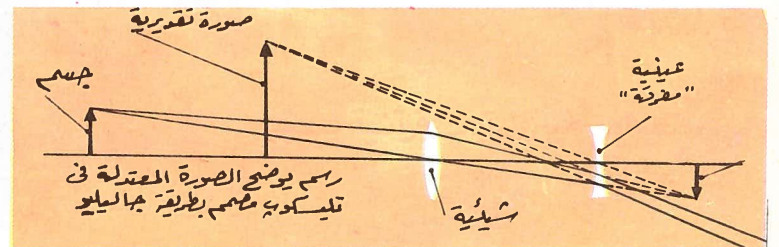 صورة تقديرية
جسم
عينية
"مفرقة"
رسم يوضح الصورة المعتدلة فى
تليسكوب مصمم بطريقة جاليليو
شيئية